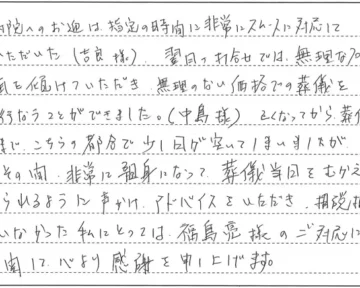 院へのお迎は、指定の時間に非常にスムースに対応して
いただいた(吉良様) 翌日の打合せでは、無理な
耳を傾けていただき、無理のない価格での葬儀を
行なうことができました。(中島様) 亡くなってから葬儀
まで、こちらの都合で少し日が空いてしまいましたが
その間、非常に親身になって、葬儀当日をむかえ
られるように声かけ、アドバイスをいただき、相続
いなかった私にとっては、福島亮様のご対応に
関して心より感謝を申し上げます。